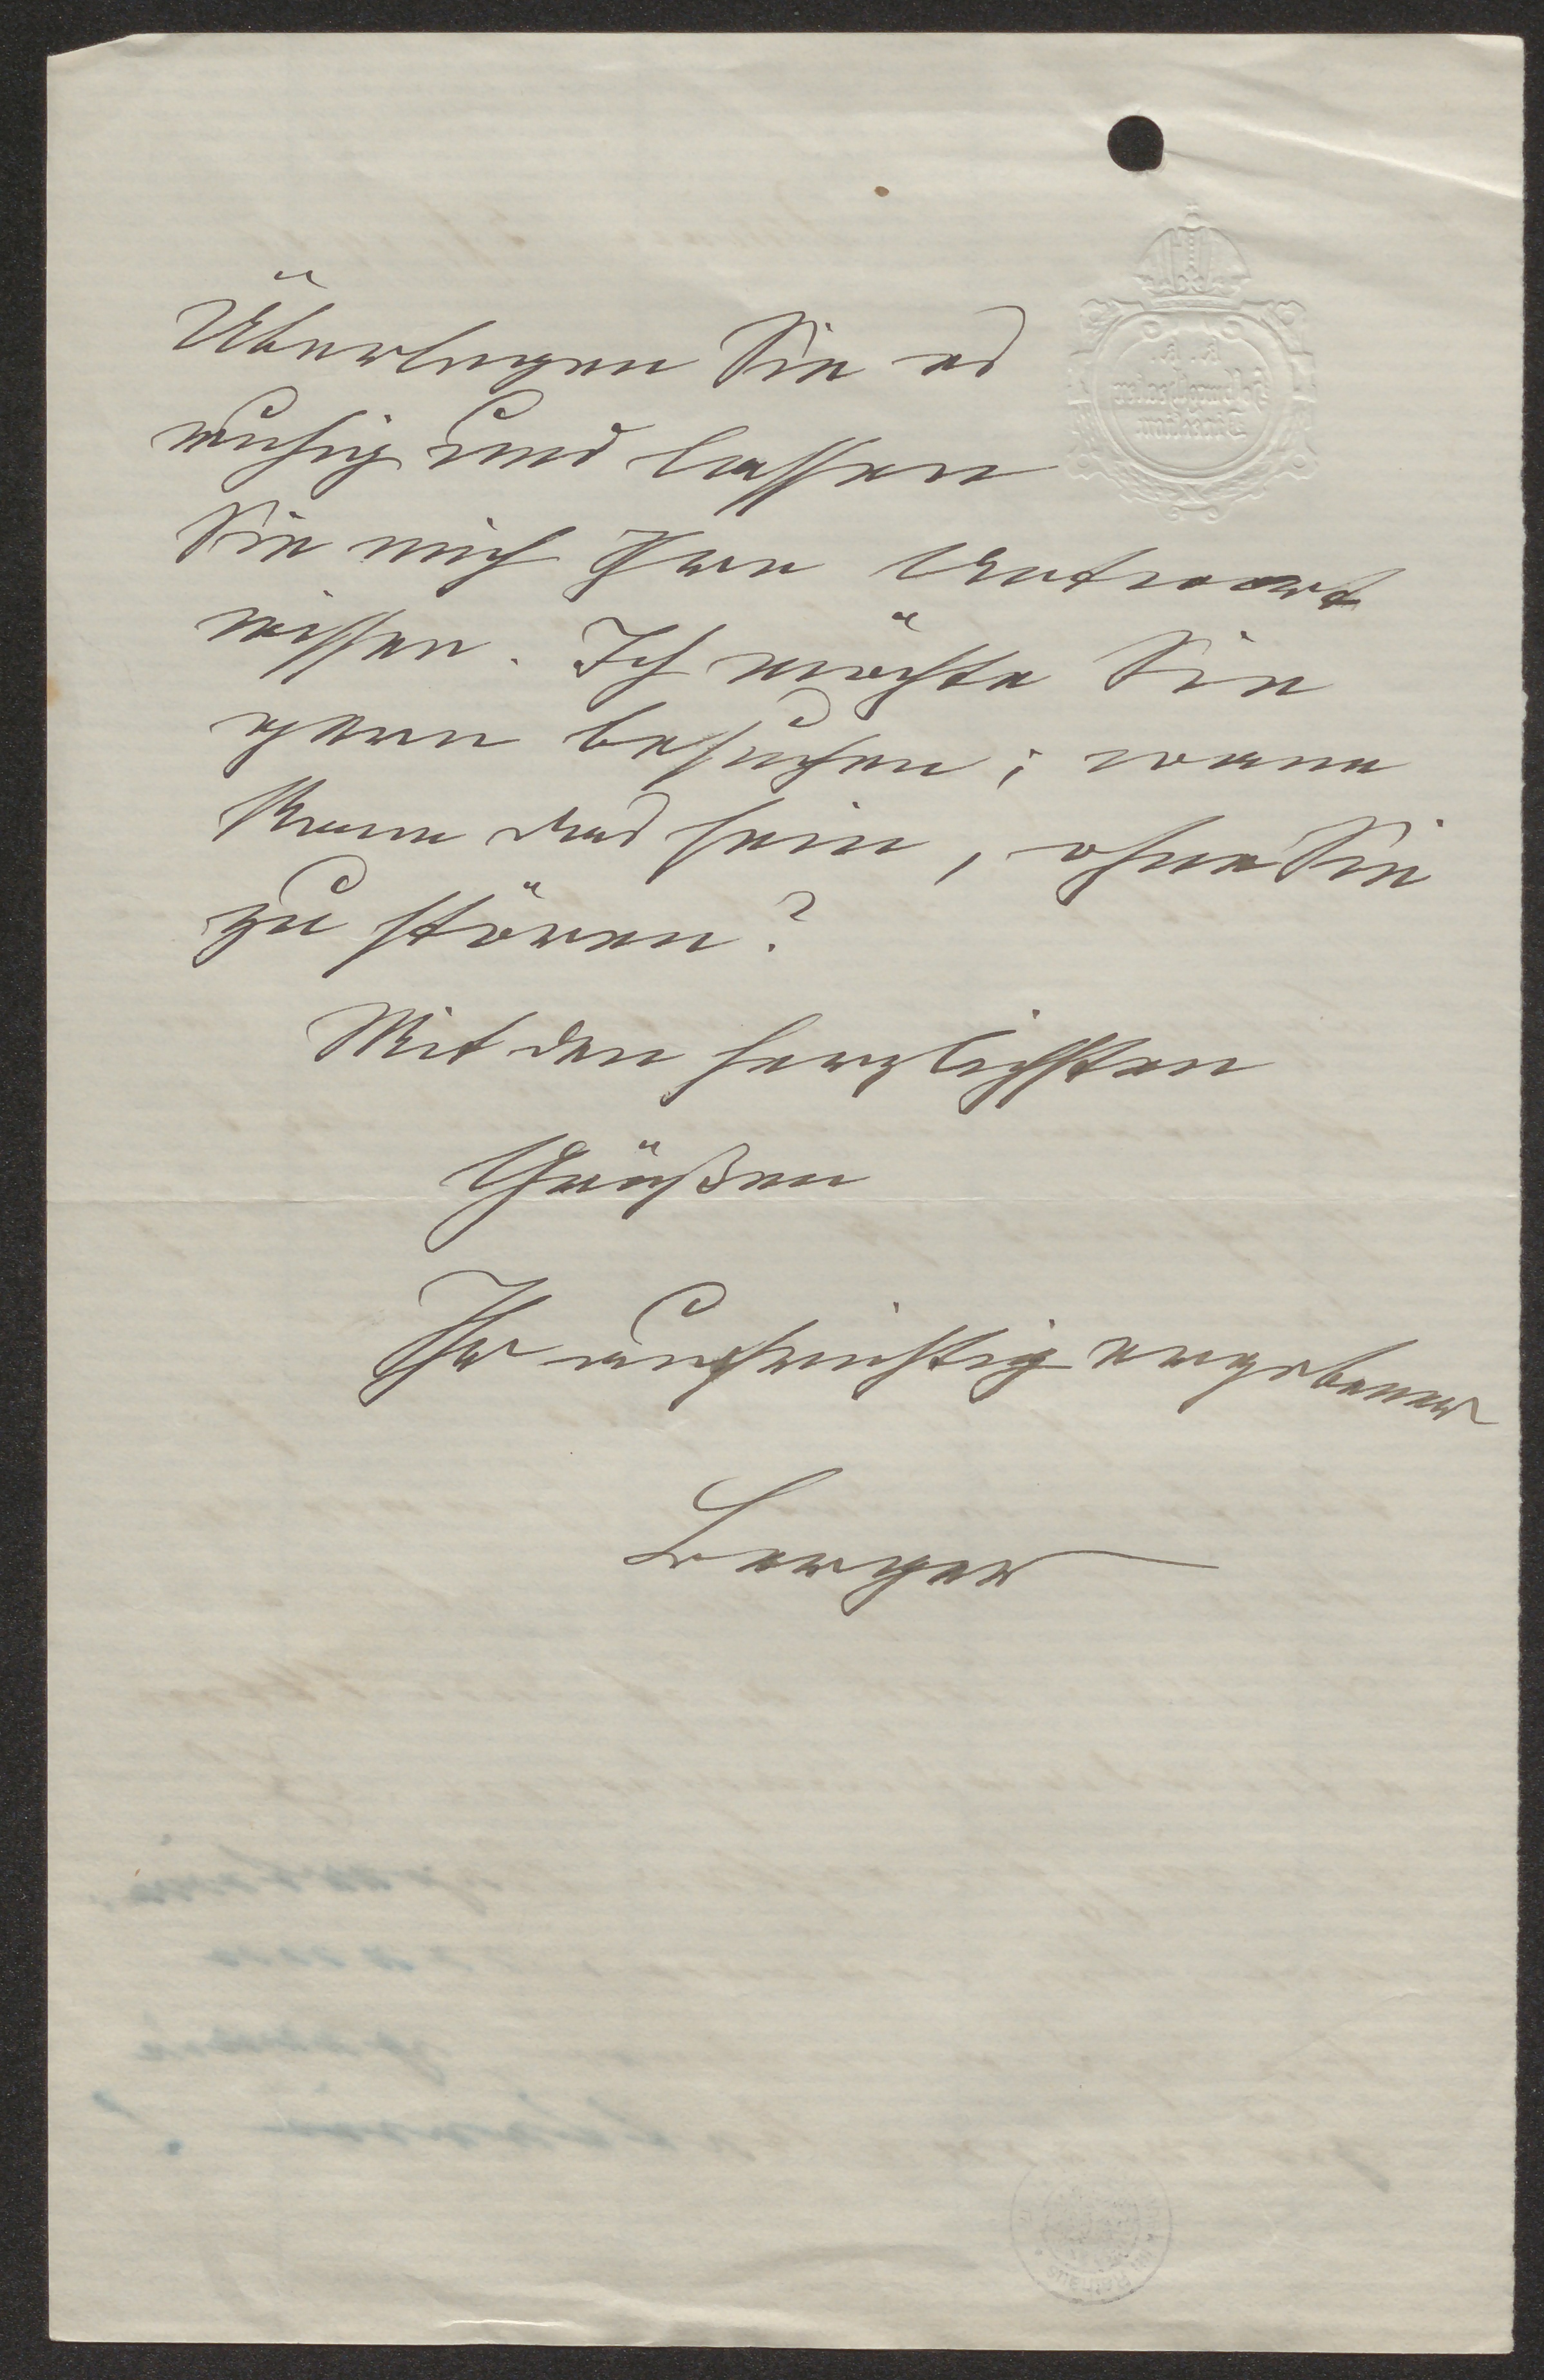 Überlegen Sie es
ruhig und lassen
Sie mich Ihre Antwort
wissen. Ich möchte Sie
gern besuchen; wann
kann das sein, ohne Sie
zu stören?
Mit den herzlichsten
Grüßen
Ihr aufrichtig ergebener
Berger